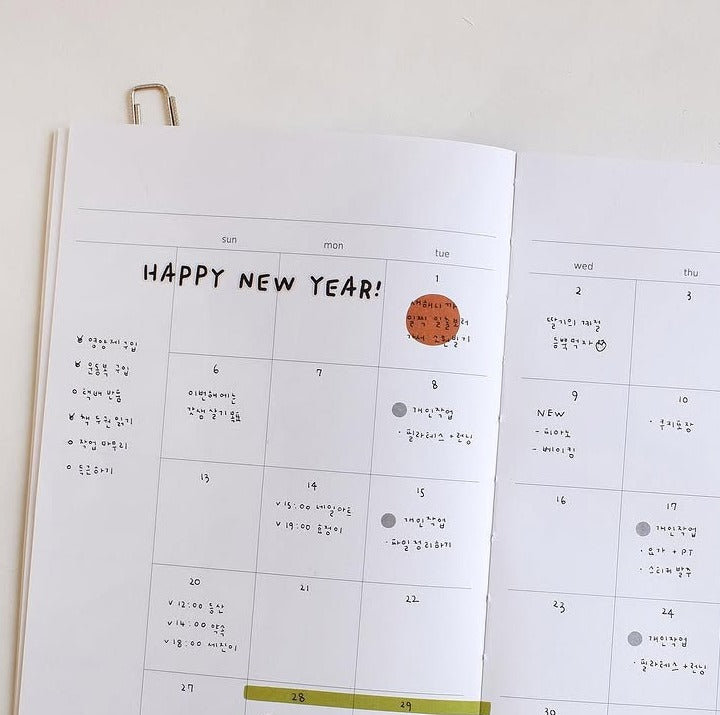 sun mon tue wed thu
HAPPY NEW YEAR!
1 2 3
새해니까
일찍 일출보러
가서 소원빌기
딸기의 계절
듬뿍먹자
영양제 구입
운동복 구입
택배 반품
책 두권 읽기
작업 마무리
6 7 8 9 10
이번해에는
갓생 살기 목표
개인작업
· 필라테스 + 런닝
NEW
- 피아노
- 베이킹
· 쿠키포장
13 14 15 16 17
v 15:00 네일아트
v 19:00 효정이
개인작업
· 파일정리하기
개인작업
· 요가 + PT
· 스티커 발주
20 21 22 23 24
v 12:00 등산
v 14:00 약속
v 18:00 세진이
개인작업
· 필라테스 + 런닝
27 28 29 30